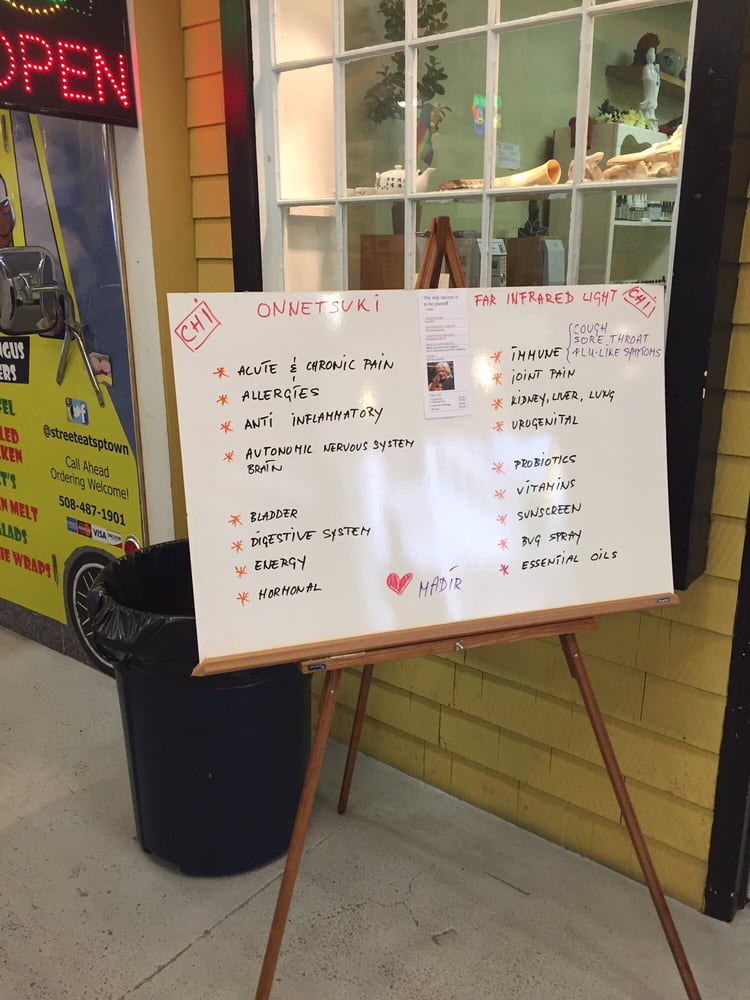 OPEN
@streeteatsptown
Call Ahead
Ordering Welcome!
508-487-1901
VISA
CHI
ONNETSUKI
FAR INFRARED LIGHT
CHI
* ACUTE & CHRONIC PAIN
* ALLERGIES
* ANTI INFLAMMATORY
* AUTONOMIC NERVOUS SYSTEM
BRAIN
* BLADDER
* DIGESTIVE SYSTEM
* ENERGY
* HORMONAL
"The only success is
to be yourself"
* IMMUNE
COUGH
SORE THROAT
FLU-LIKE SYMPTOMS
* JOINT PAIN
* KIDNEY, LIVER, LUNG
* UROGENITAL
* PROBIOTICS
* VITAMINS
* SUNSCREEN
* BUG SPRAY
* ESSENTIAL OILS
MADIR